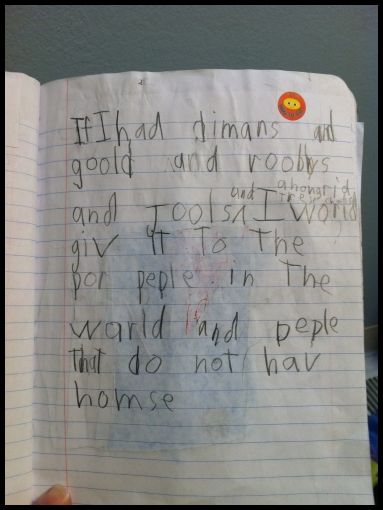 If I had dimans and
goold and roobys
and Joolsn and a hongrid
I world
giv it to the
por peple in the
warld and peple
that do not hav
homse